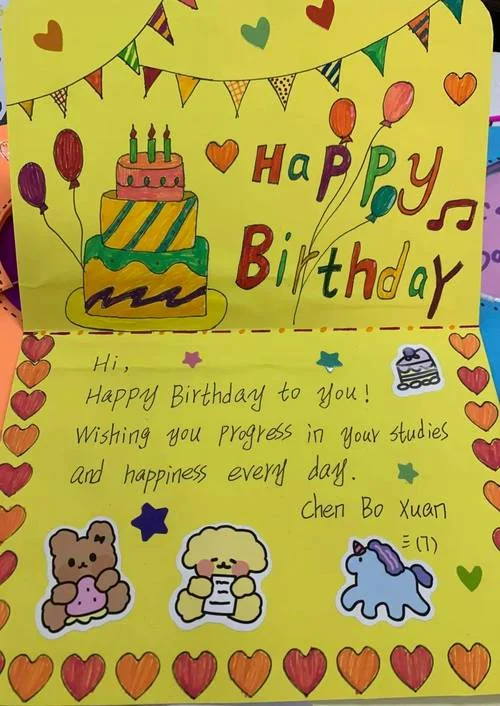 Happy
Birthday
Hi,
Happy Birthday to you!
Wishing you progress in your studies
and happiness every day.
Chen Bo Xuan
三(7)